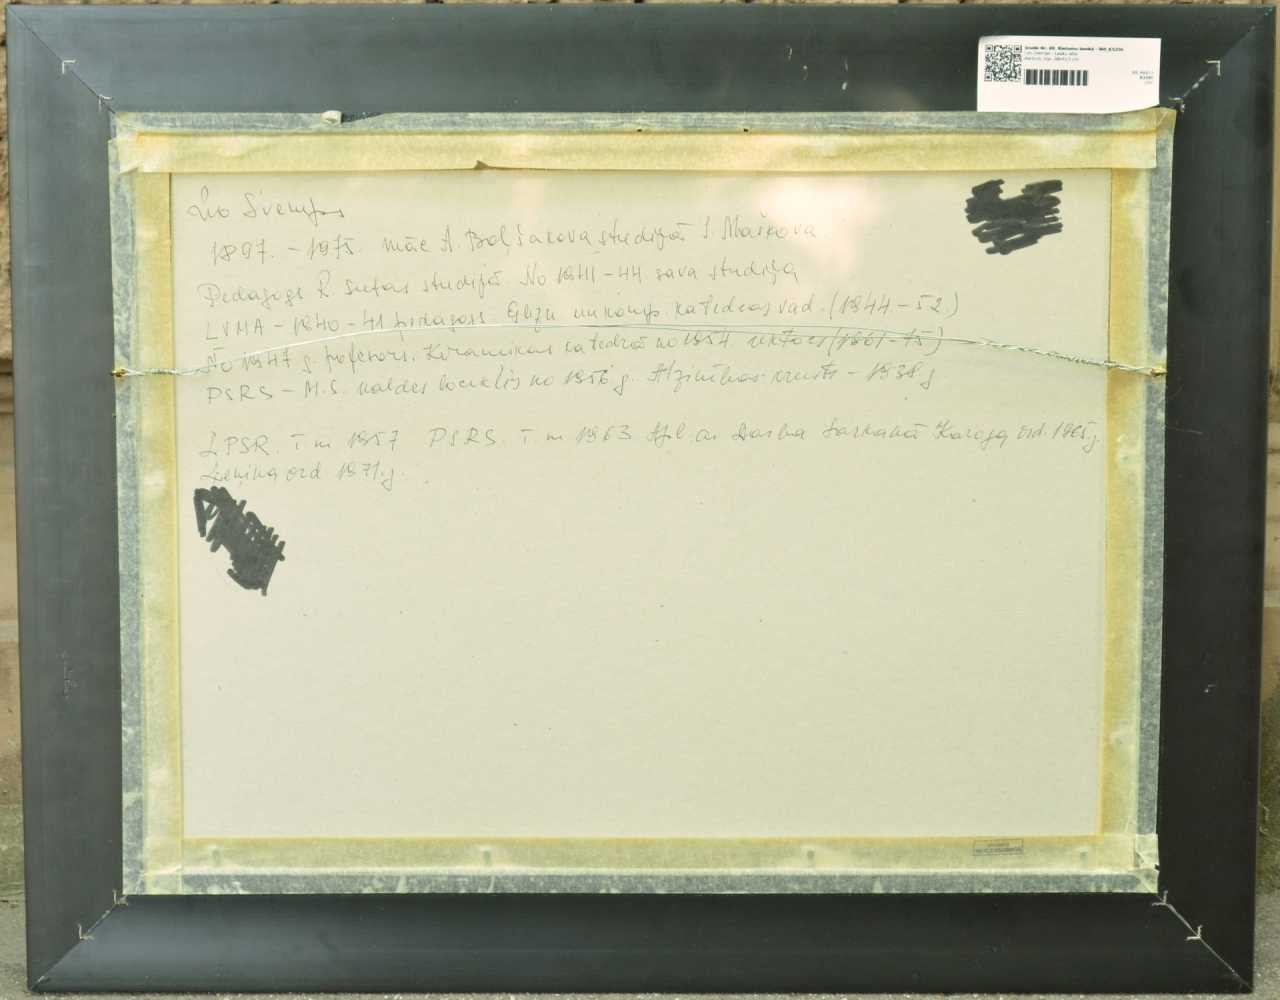 Leo Svemps
1897. - 1975. māc A. Boļšakova studijās I. Maškova
Pedagogs R. Sutas studijā. No 1941-44 sava studija
LVMA - 1940-41 pedagogs. Glezn. un komp. katedras vad. (1944-52.)
No 1947 g. profesors. Keramikas katedrā no 1954 rektors (1961-75)
PSRS - M.S. valdes loceklis no 1956 g. Atzinības krusts - 1938 g
LPSR. T. m 1957 PSRS. T. m 1963 Apb. ar Darba Sarkanā Karoga ord. 1965 g.
Ļeņina ord 1971. g.